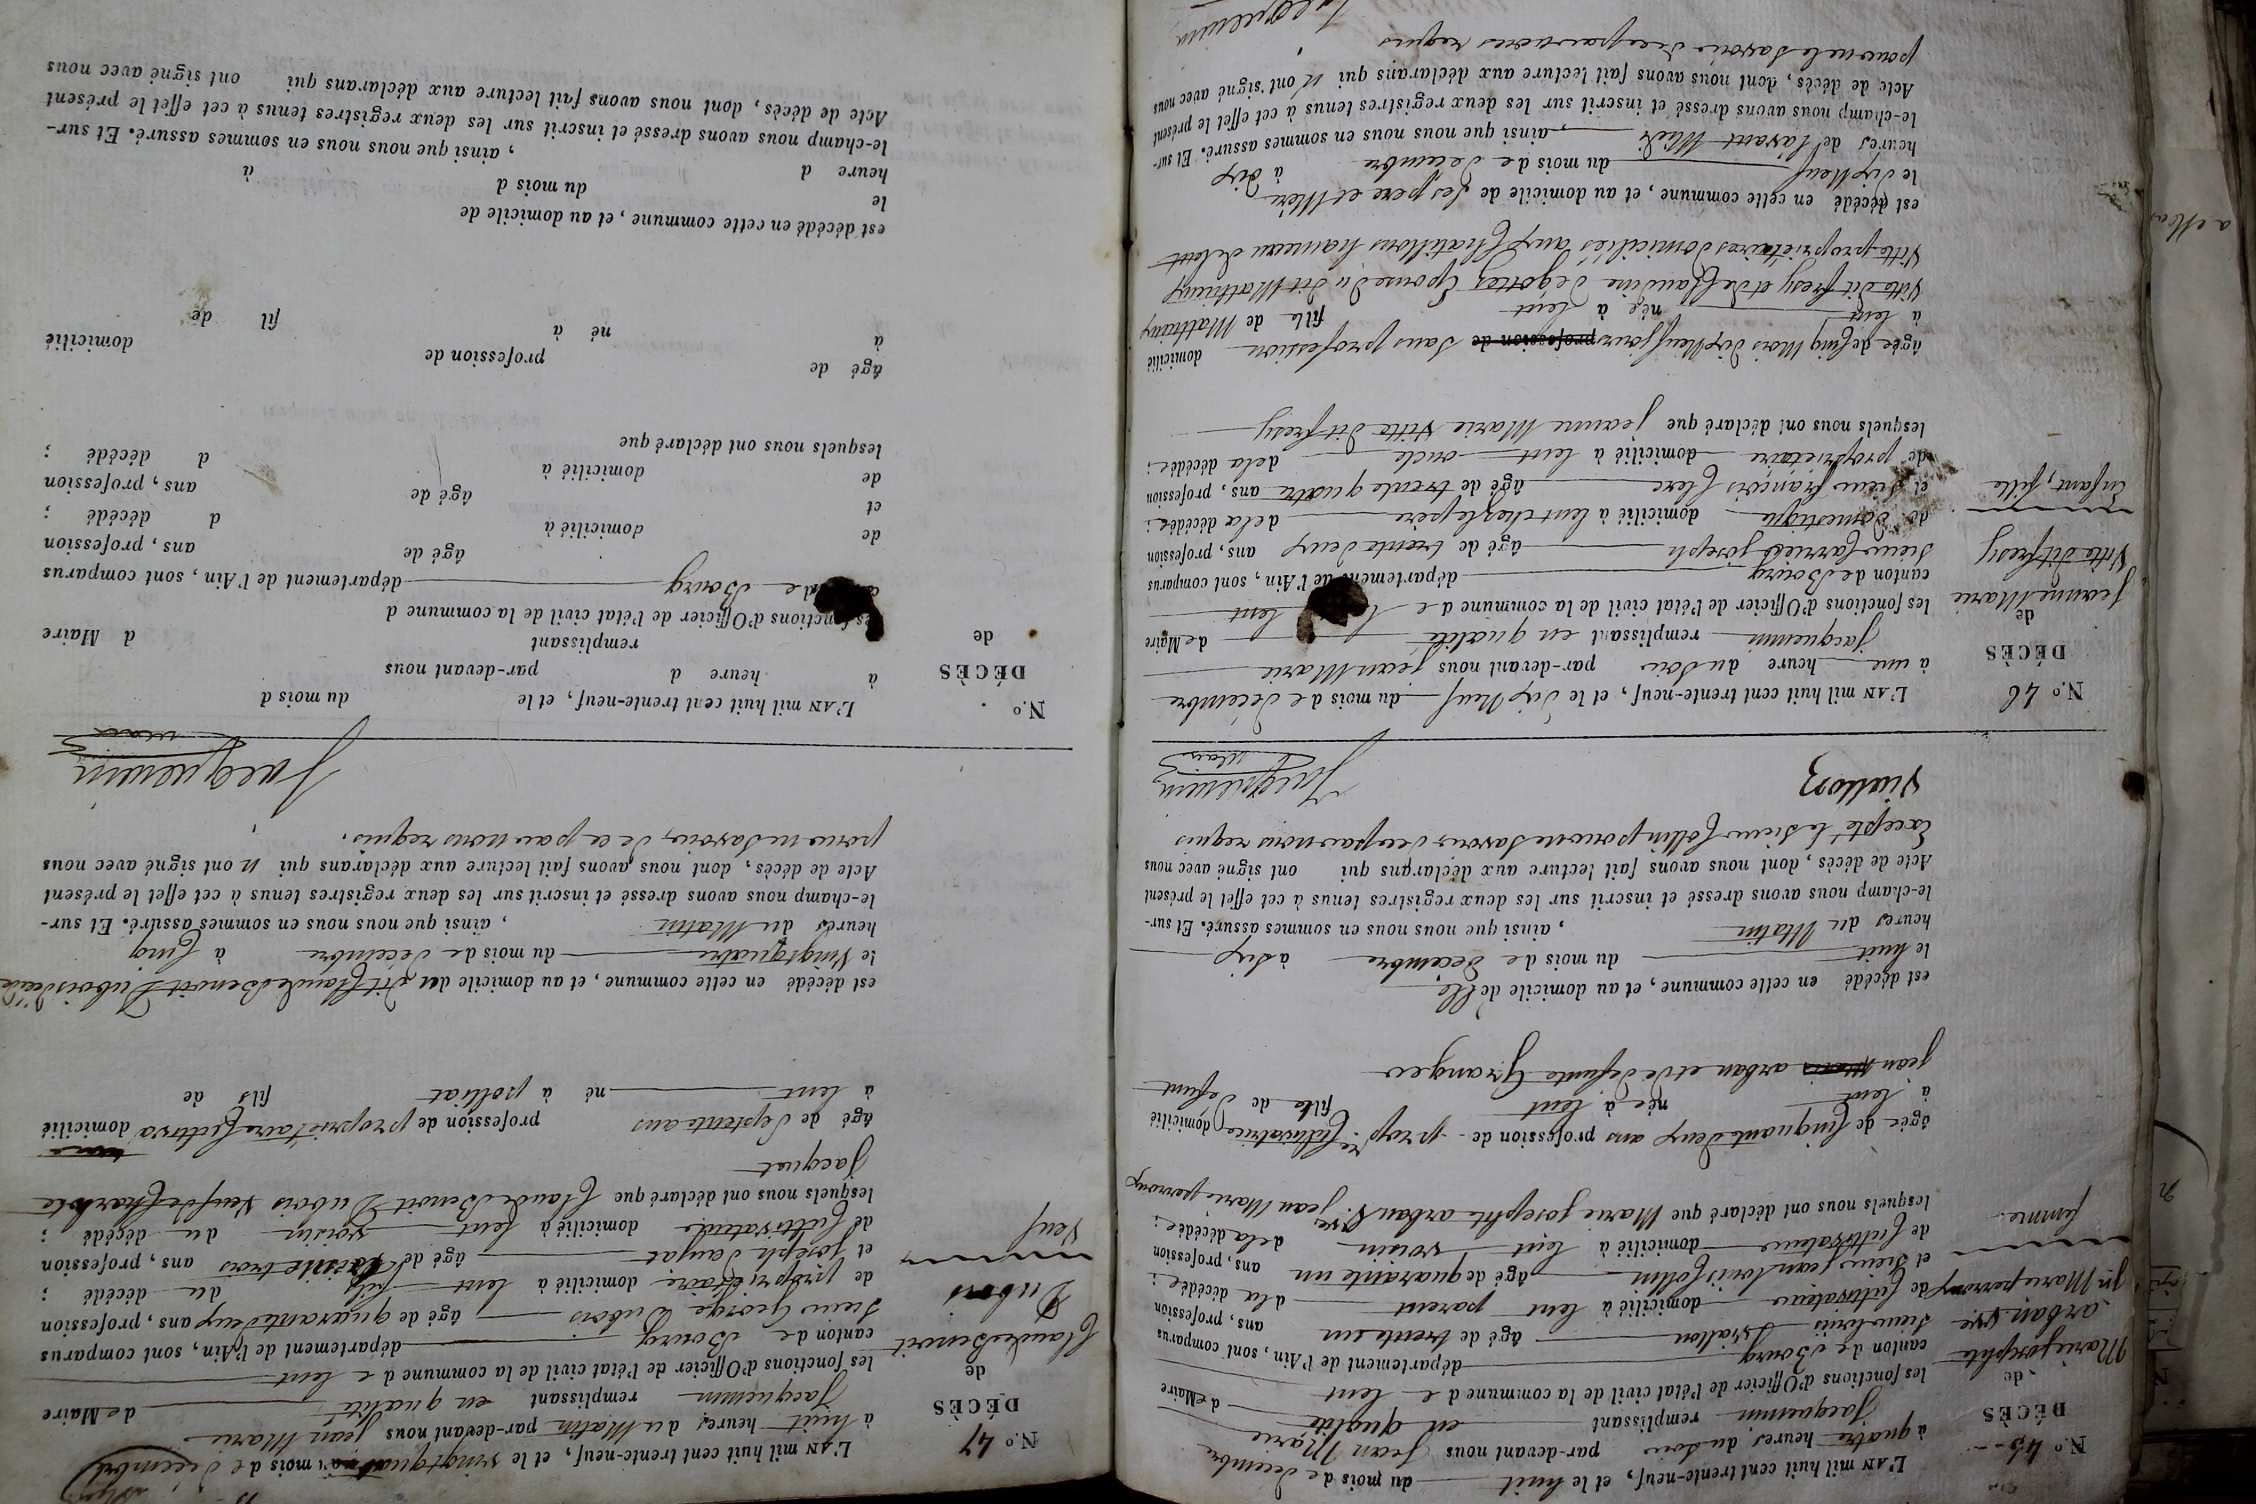 N.º 45
DÉCÈS
de
Marie josephte
arban Vve
Jn Marie perroux
femme.
L'AN mil huit cent trente-neuf, et le huit du mois de Decembre
à quatre heures du soir par-devant nous Jean Marie
Jacquemin remplissant en qualité de Maire
les fonctions d'Officier de l'état civil de la commune de lent
canton de Bourg département de l'Ain, sont comparus
Sieur louis Viallon âgé de trente un ans, profession
de Cultivateur domicilié à lent parent de la décédée ;
et Sieur jean louis Collin âgé de quarante un ans, profession
de Cultivateur domicilié à lent voisin de la décédée ;
lesquels nous ont déclaré que Marie josephte arban Vve jean Marie perroux
âgée de Cinquante deux ans profession de prop.re Cultivatrice domicilié
à lent née à lent fille de defunt
jean arban et de defunte Grangeo
est décédé en cette commune, et au domicile d'elle
le huit du mois de Decembre à dix
heures du Matin , ainsi que nous nous en sommes assuré. Et sur-
le-champ nous avons dressé et inscrit sur les deux registres tenus à cet effet le présent
Acte de décès, dont nous avons fait lecture aux déclarans qui ont signé avec nous
Excepté le Sieur Collin pour ne savoir de ce par nous requis
Viallon
Jacquemin
Maire
N.º 46
DÉCÈS
de
Jeanne Marie
Vitte dit fresy
Enfant, fille
L'AN mil huit cent trente-neuf, et le dix Neuf du mois de Décembre
à une heure du soir par-devant nous jean Marie
Jacquemin remplissant en qualité de Maire
les fonctions d'Officier de l'état civil de la commune de lent
canton de Bourg département de l'Ain, sont comparus
Sieur joseph âgé de trente deux ans, profession
de Domestique domicilié à lent chez le père de la décédée ;
et Sieur françois âgé de trente quatre ans, profession
de propriétaire domicilié à lent oncle de la décédée ;
lesquels nous ont déclaré que jeanne Marie Vitte dit fresy
âgée de Cinq Mois dix Neuf jours profession de sans profession domicilié
à lent née à lent fille de Mathieu
Vitte dit fresy et de Claudine Epouse du dit Mathieux
Vitte propriétaires domiciliés aux Chatillons hameau de lent
est décédé en cette commune, et au domicile de ses pere et Mere
le dix Neuf du mois de Decembre à dix
heures de lavant Midi , ainsi que nous nous en sommes assuré. Et sur-
le-champ nous avons dressé et inscrit sur les deux registres tenus à cet effet le présent
Acte de décès, dont nous avons fait lecture aux déclarans qui n ont signé avec nous
pour ne le savoir de ce par nous requis
Jacquemin
N.º 47
DÉCÈS
de
Claude Benoit
Dubois
Veuf
L'AN mil huit cent trente-neuf, et le vingt quatre du mois de Décembre
à huit heures du Matin par-devant nous jean Marie
Jacquemin remplissant en qualité de Maire
les fonctions d'Officier de l'état civil de la commune de lent
canton de Bourg département de l'Ain, sont comparus
Sieur George Dubois âgé de quarante deux ans, profession
de propriétaire domicilié à lent fils du décédé ;
et joseph âgé de trois ans, profession
de Cultivateur domicilié à lent voisin du décédé ;
lesquels nous ont déclaré que Claude Benoit Dubois Veuf de Charlote
Jacquet
âgé de Septente ans profession de propriétaire domicilié
à lent né à polliat fils de
est décédé en cette commune, et au domicile du dit Claude Benoit Dubois
le Vingt quatre du mois de décembre à Cinq
heures du Matin , ainsi que nous nous en sommes assuré. Et sur-
le-champ nous avons dressé et inscrit sur les deux registres tenus à cet effet le présent
Acte de décès, dont nous avons fait lecture aux déclarans qui n ont signé avec nous
pour ne savoir de ce par nous requis.
Jacquemin
Maire
N.º
DÉCÈS
de
L'AN mil huit cent trente-neuf, et le du mois d
à heure d par-devant nous
remplissant d Maire
les fonctions d'Officier de l'état civil de la commune d
de Bourg département de l'Ain, sont comparus
âgé de ans, profession
de domicilié à d décédé ;
et âgé de ans, profession
de domicilié à d décédé ;
lesquels nous ont déclaré que
âgé de profession de domicilié
à né à fil de
est décédé en cette commune, et au domicile de
le du mois d à
heure d , ainsi que nous nous en sommes assuré. Et sur-
le-champ nous avons dressé et inscrit sur les deux registres tenus à cet effet le présent
Acte de décès, dont nous avons fait lecture aux déclarans qui ont signé avec nous